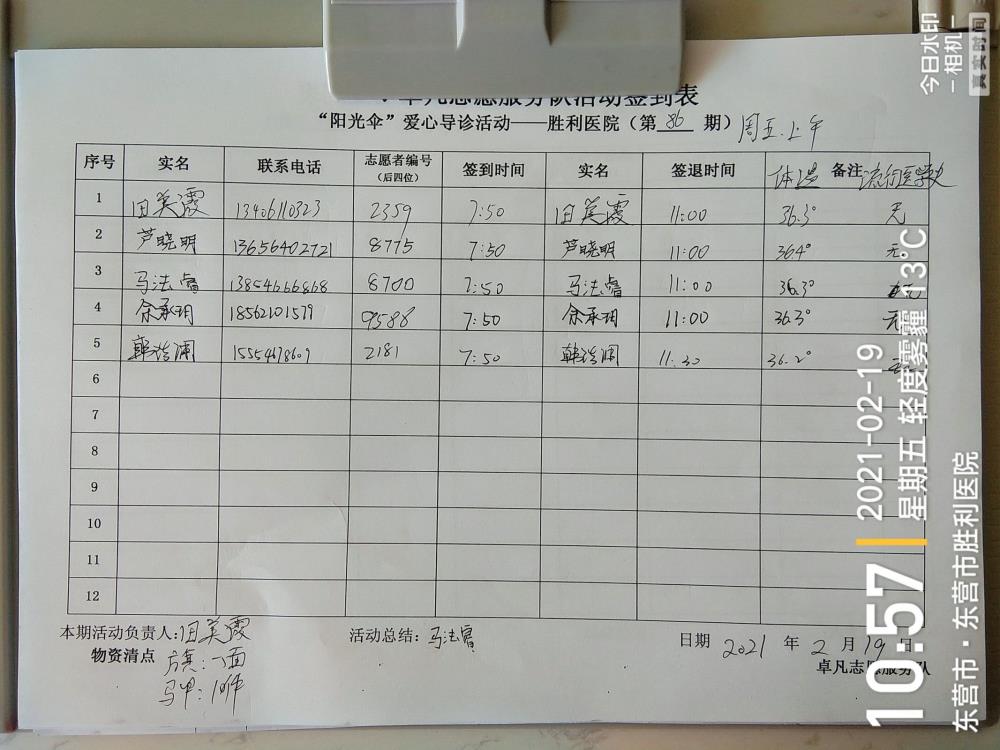 卓凡志愿服务队活动签到表
“阳光伞”爱心导诊活动——胜利医院（第 86 期）周五.上午
序号 实名 联系电话 志愿者编号（后四位） 签到时间 实名 签退时间 体温 备注 流行医学史
1 田美霞 13406110323 2359 7:50 田美霞 11:00 36.3° 无
2 芦晓明 13656402721 8775 7:50 芦晓明 11:00 36.4° 无
3 马法睿 13854666868 8700 7:50 马法睿 11:00 36.3° 无
4 余承玥 18562101579 9588 7:50 余承玥 11:00 36.3° 无
5 2181 7:50 11:30 36.2°
6
7
8
9
10
11
12
本期活动负责人:田美霞 活动总结: 马法睿 日期 2021 年 2 月 19 日
物资清点 旗:一面 卓凡志愿服务队
马甲:10件
今日水印
-相机-
真实时间
10:57
2021-02-19
星期五 轻度雾霾 13°C
东营市·东营市胜利医院